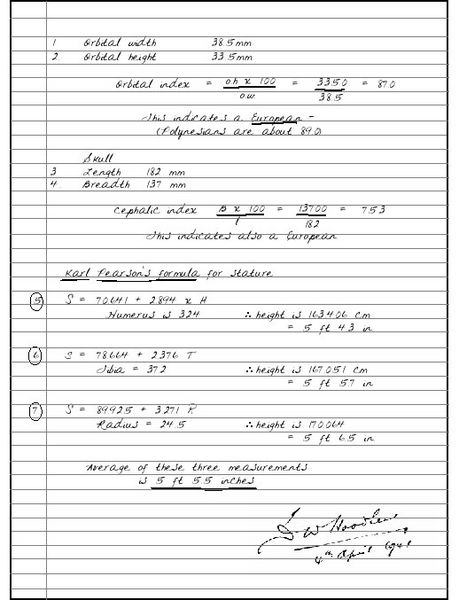 1 Orbital width 38.5mm
2 Orbital height 33.5mm
Orbital index = oh x 100 = 3350 = 87.0
o.w. 38.5
This indicates a European -
(Polynesians are about 89.0)
Skull
3 Length 182 mm
4 Breadth 137 mm
Cephalic index B x 100 = 13700 = 75.3
l 182
This indicates also a European
Karl Pearson's formula for stature
5 S = 70.641 + 2.894 x H
Humerus is 32.4 ∴ height is 163.406 cm
= 5 ft 4.3 in
6 S = 78.664 + 2.376 T
Tibia = 37.2 ∴ height is 167.051 cm
= 5 ft 5.7 in
7 S = 89.925 + 3.271 R
Radius = 24.5 ∴ height is 170.064
= 5 ft 6.5 in
Average of these three measurements
is 5 ft 5.5 inches
D W Hoodless
4th April 1941